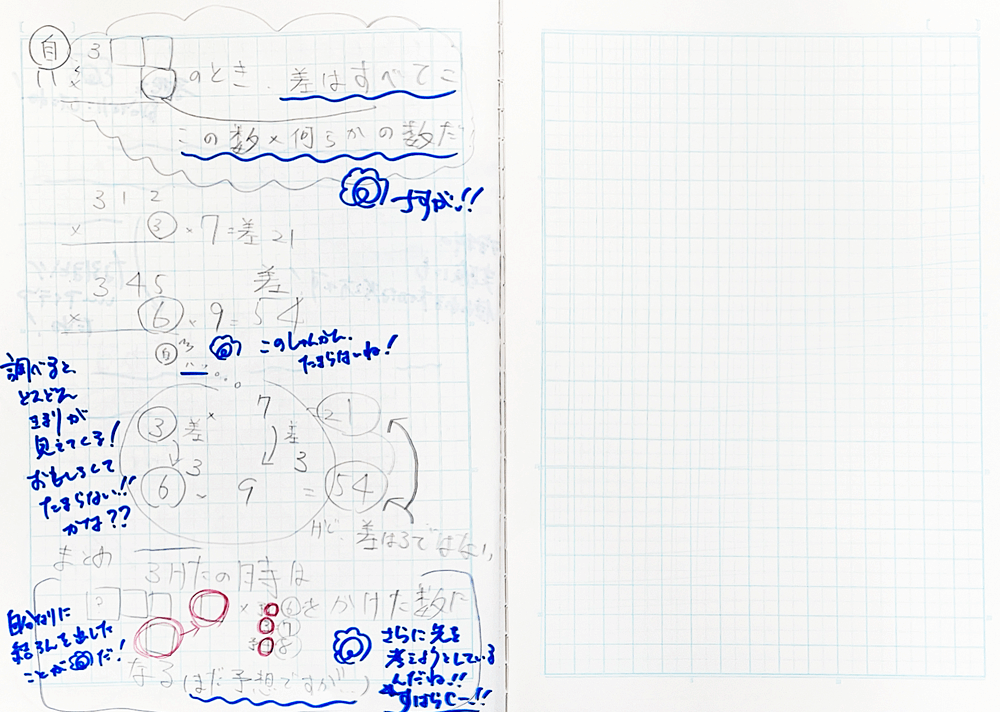 自 3□□
× □のとき、差はすべてこ
この数×何らかの数だ
さすが!!
3 1 2
× ③×7=差21
3 4 5 差
× ⑥×9=54
自
このしゅんかん、
たまらないね!
調べると
どんどん
きまりが
見えてくる!
おもしろくて
たまらない!!
かな??
③ × 7 21
差 3 差 3
⑥ 9 = 54
差は3ではない
まとめ
3けたの時は
□□□ × ⑥をかけた数に
⑦
なる(まだ予想ですが…)
自分なりに
結ろんを出した
ことが◎だ!
さらに先を
考えようとしている
んだね!!
すばらしーい!!